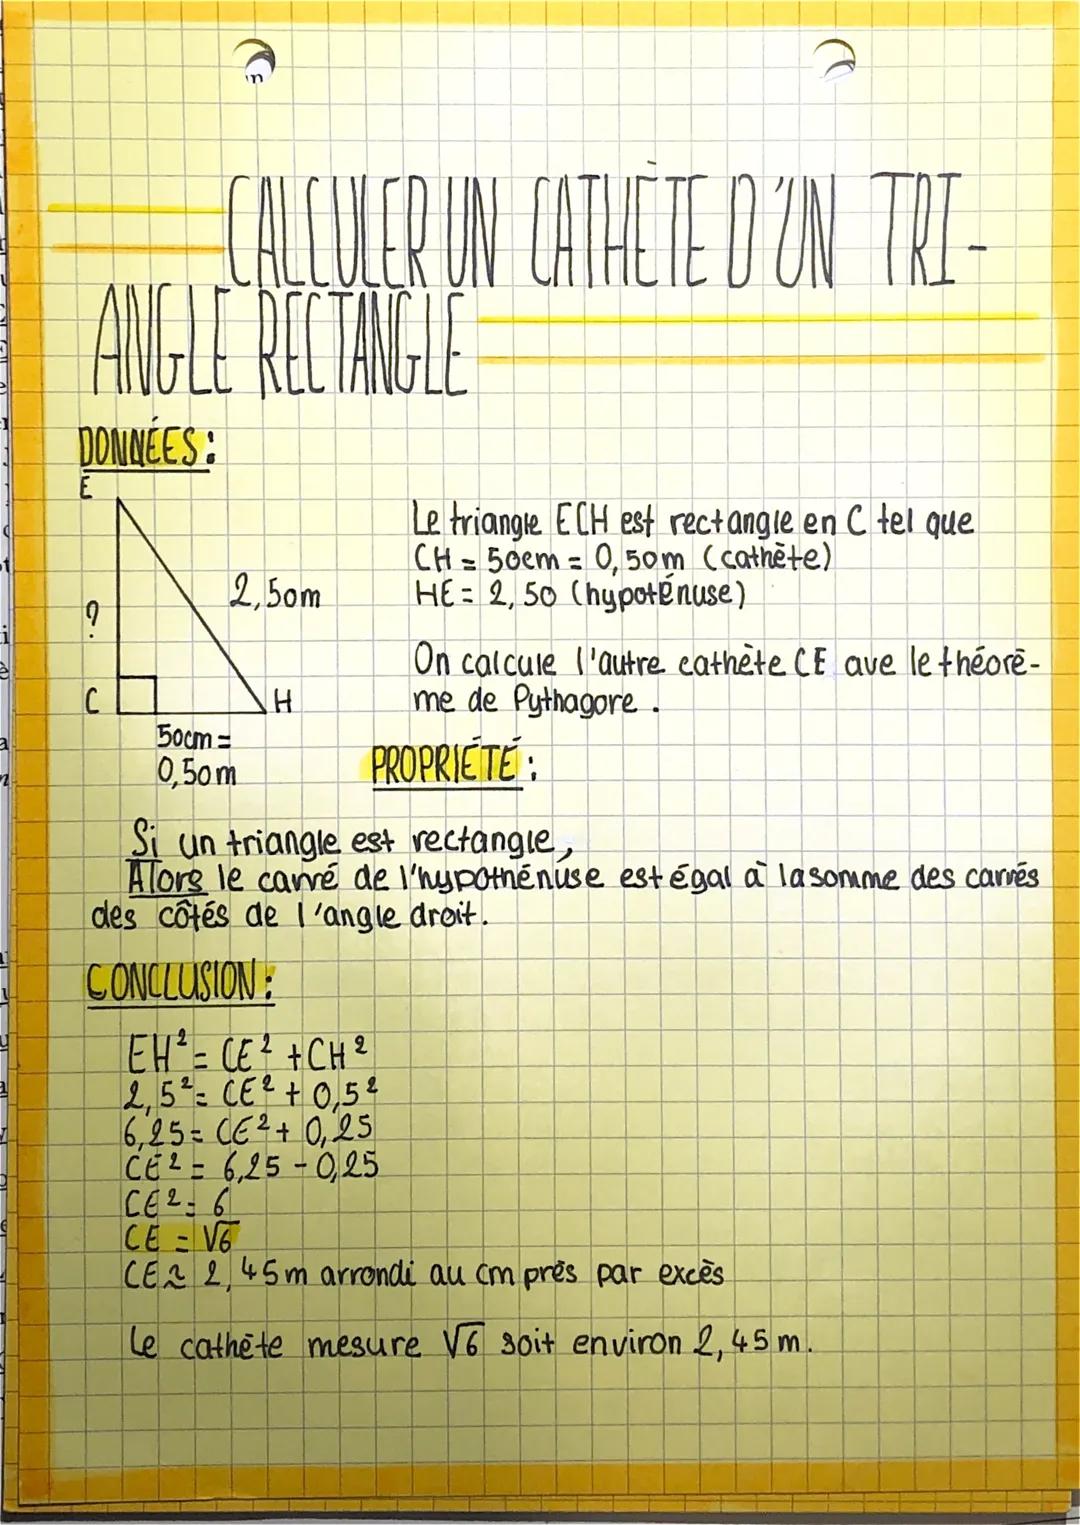 CALCULER UN CATHÈTE D'UN TRI-
ANGLE RECTANGLE
DONNÉES :
E
2,50m
?
C
H
50cm =
0,50m
Le triangle ECH est rectangle en C tel que
CH = 50cm = 0,50m (cathète)
HE = 2,50 (hypoténuse)
On calcule l'autre cathète CE ave le théorè-
me de Pythagore.
PROPRIÉTÉ :
Si un triangle est rectangle,
Alors le carré de l'hypothénuse est égal à la somme des carrés
des côtés de l'angle droit.
CONCLUSION :
EH² = CE² + CH²
2,5² = CE² + 0,5²
6,25 = CE² + 0,25
CE² = 6,25 - 0,25
CE² = 6
CE = √6
CE ≈ 2,45m arrondi au cm près par excès
Le cathète mesure √6 soit environ 2,45 m.